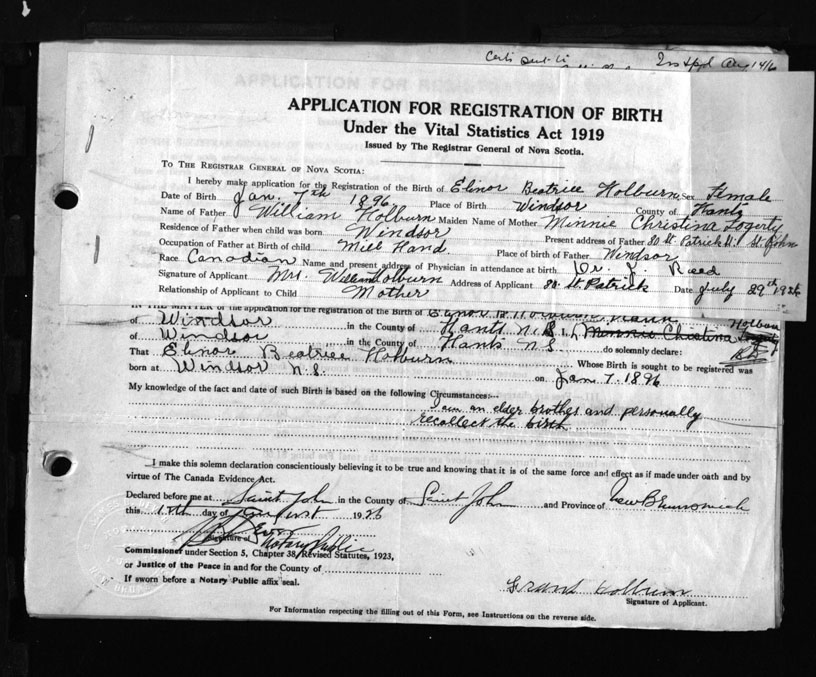 Aug 14/6
APPLICATION FOR REGISTRATION OF BIRTH
Under the Vital Statistics Act 1919
Issued by The Registrar General of Nova Scotia.
TO THE REGISTRAR GENERAL OF NOVA SCOTIA:
I hereby make application for the Registration of the Birth of Elinor Beatrice Holburn Sex Female
Date of Birth Jan. 7th 1896 Place of Birth Windsor County of Hants
Name of Father William Holburn Maiden Name of Mother Minnie Christina Fogerty
Residence of Father when child was born Windsor Present address of Father 80 St. Patrick St. St. John
Occupation of Father at Birth of child Mill Hand. Place of birth of Father Windsor
Race Canadian Name and present address of Physician in attendance at birth Dr. J. Reed
Signature of Applicant Mrs. William Holburn Address of Applicant 80 St. Patrick Date July 29th 1926
Relationship of Applicant to Child Mother
IN THE MATTER of the application for the registration of the Birth of Elinor B. Holburn
of Windsor in the County of Hants N.S. I, Minnie Christina Holburn
of Windsor in the County of Hants N.S. do solemnly declare:
That Elinor Beatrice Holburn Whose Birth is sought to be registered was
born at Windsor N.S. on Jan 7. 1896
My knowledge of the fact and date of such Birth is based on the following Circumstances:--
I am an elder brother and personally
recollect the birth
I make this solemn declaration conscientiously believing it to be true and knowing that it is of the same force and effect as if made under oath and by
virtue of The Canada Evidence Act.
Declared before me at Saint John in the County of Saint John and Province of New Brunswick
this 12th day of August 1926
Signature of Notary Public
Commissioner under Section 5, Chapter 38, Revised Statutes, 1923,
or Justice of the Peace in and for the County of
If sworn before a Notary Public affix seal.
Grant Holburn
Signature of Applicant.
For Information respecting the filling out of this Form, see Instructions on the reverse side.